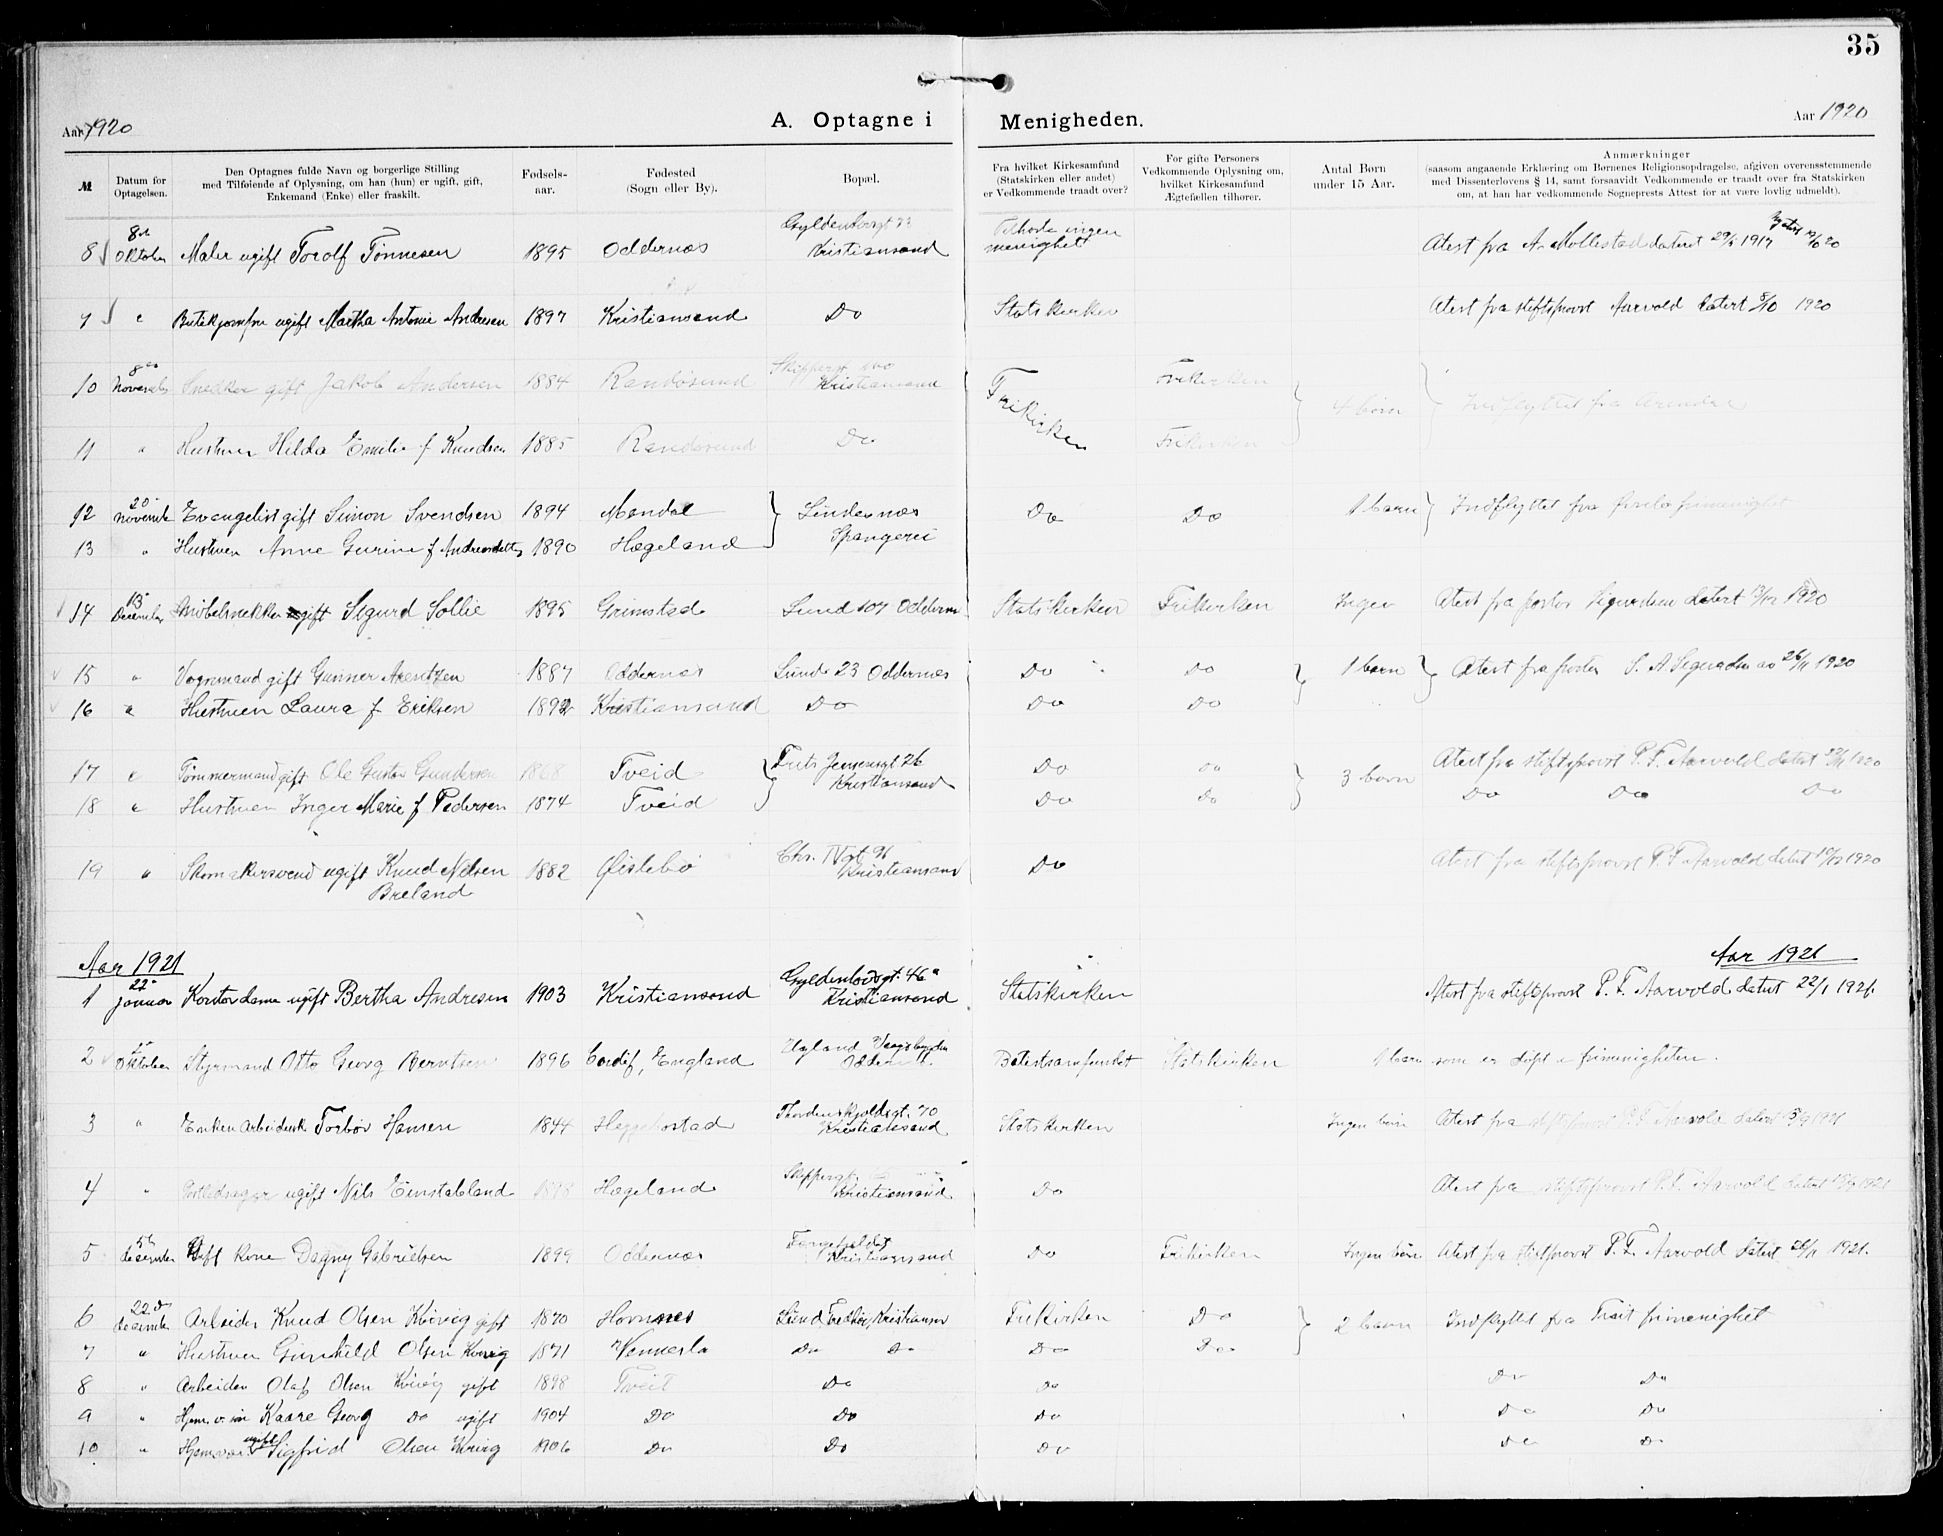 35
Aar 1920
A. Optagne i Menigheden.
Aar 1920
№
Datum for Optagelsen.
Den Optagnes fulde Navn og borgerlige Stilling
med Tilføiende af Oplysning, om han (hun) er ugift, gift,
Enkemand (Enke) eller fraskilt.
Fødsels-
aar.
Fødested
(Sogn eller By).
Bopæl.
Fra hvilket Kirkesamfund
(Statskirken eller andet)
er Vedkommende traadt over?
For gifte Personers
Vedkommende Oplysning om,
hvilket Kirkesamfund
Ægtefællen tilhører.
Antal Børn
under 15 Aar.
Anmærkninger
(saasom angaaende Erklæring om Børnenes Religionsopdragelse, afgiven overensstemmende
med Dissenterlovens § 14, samt forsaavidt Vedkommende er traadt over fra Statskirken
om, at han har vedkommende Sogneprests Attest for at være lovlig udmeldt).
8 8de Oktober Maler ugift Torolf Tønnesen 1895 Oddernæs Kristiansand Tilhørte ingen menighett Atest fra A. Mollestad dateret 29/5 1917
9 " Butikjomfru ugift Martha Antonie Andersen 1897 Kristiansand Do Statskirken Atest fra stiftsprovst Aarvold datert 8/10 1920
10 8de November Snedker gift Jakob Andersen 1884 Randøsund Skippergt Kristiansand Frikirken Frikirken 4 børn Indflyttet fra Arendal
11 " Hustruen Hilda Emilie f Knudsen 1885 Randøsund Do Frikirken
12 20 November Evangelist gift Simon Svendsen 1894 Mandal Lindesnæs Spangerei Do Do 1 barn Indflyttet fra frimenighet
13 " Hustruen Anne Gurine f Andreasdatter 1890 Hægeland
14 13 December Møbelsnekker gift Sigurd Sollie 1895 Grimstad Lund 107 Oddernes Statskirken Frikirken Ingen Atest fra pastor Sigurdsen datert 13/12 1920
15 " Vognmand gift Gunner Arentzen 1887 Oddernes Lund 23 Oddernes Do Do 1 barn Atest fra pastor S. A Sigurdsen av 26/11 1920
16 " Hustruen Laura f Eriksen 1892 Kristiansand Do Do Do
17 " Tømmermand gift Ole Gustav Gundersen 1868 Tveid Frits Jensensgt 26 Kristiansand Do Do 3 børn Atest fra stiftsprovst P. F. Aarvold datert 1920
18 " Hustruen Inger Marie f Pedersen 1874 Tveid Do Do Do Do Do
19 " Skomakersvend ugift Knud Nilsen Breland 1882 Øislebø Chr. IV gt 96 Kristiansand Do Atest fra stiftsprovst P F Aarvold datert 10/12 1920
Aar 1921
Aar 1921
1 22 januar Kontordame ugift Bertha Andresen 1903 Kristiansand Gyldenløvsgt. 46a Kristiansand Statskirken Atest fra stiftsprovst P. F. Aarvold datert 22/1 1921.
2 Oktober Styrmand Otto Georg Berntsen 1896 Cardif, England Statskirken 1 barn som er døpt i frimenigheten.
3 " Enken Torbør Hansen 1844 Heggekostad Thordenskjoldsgt. 70 Kristiansand Statskirken Ingen børn Atest fra stiftsprovst P. F. Aarvold datert 1921
4 " ugift Nils Eimstabland 1898 Hægeland Skippergt. Kristiansand Do Atest fra stiftsprovst P. F. Aarvold datert 1921
5 5te desember Gift kone Dagny Gabrielsen 1899 Oddernes Kristiansand Do Frikirken Ingen børn Atest fra stiftsprovst P. F. Aarvold datert 26/11 1921.
6 22de desember Arbeider Knud Olsen Kvivig gift 1870 Hornnes Lund Kristiansand Frikirken Do 2 børn Indflyttet fra Tveit frimenighet
7 " Hustruen Gunhild Olsen Kvivig 1871 Vennesla Do Do Do Do
8 " Arbeider Olaf Olsen Kvivig gift 1898 Tveit Do Do Do Do
9 " Kaare Georg Do ugift 1904 Do Do Do Do Do
10 " ugift Sigfrid Olsen Kvivig 1906 Do Do Do Do Do